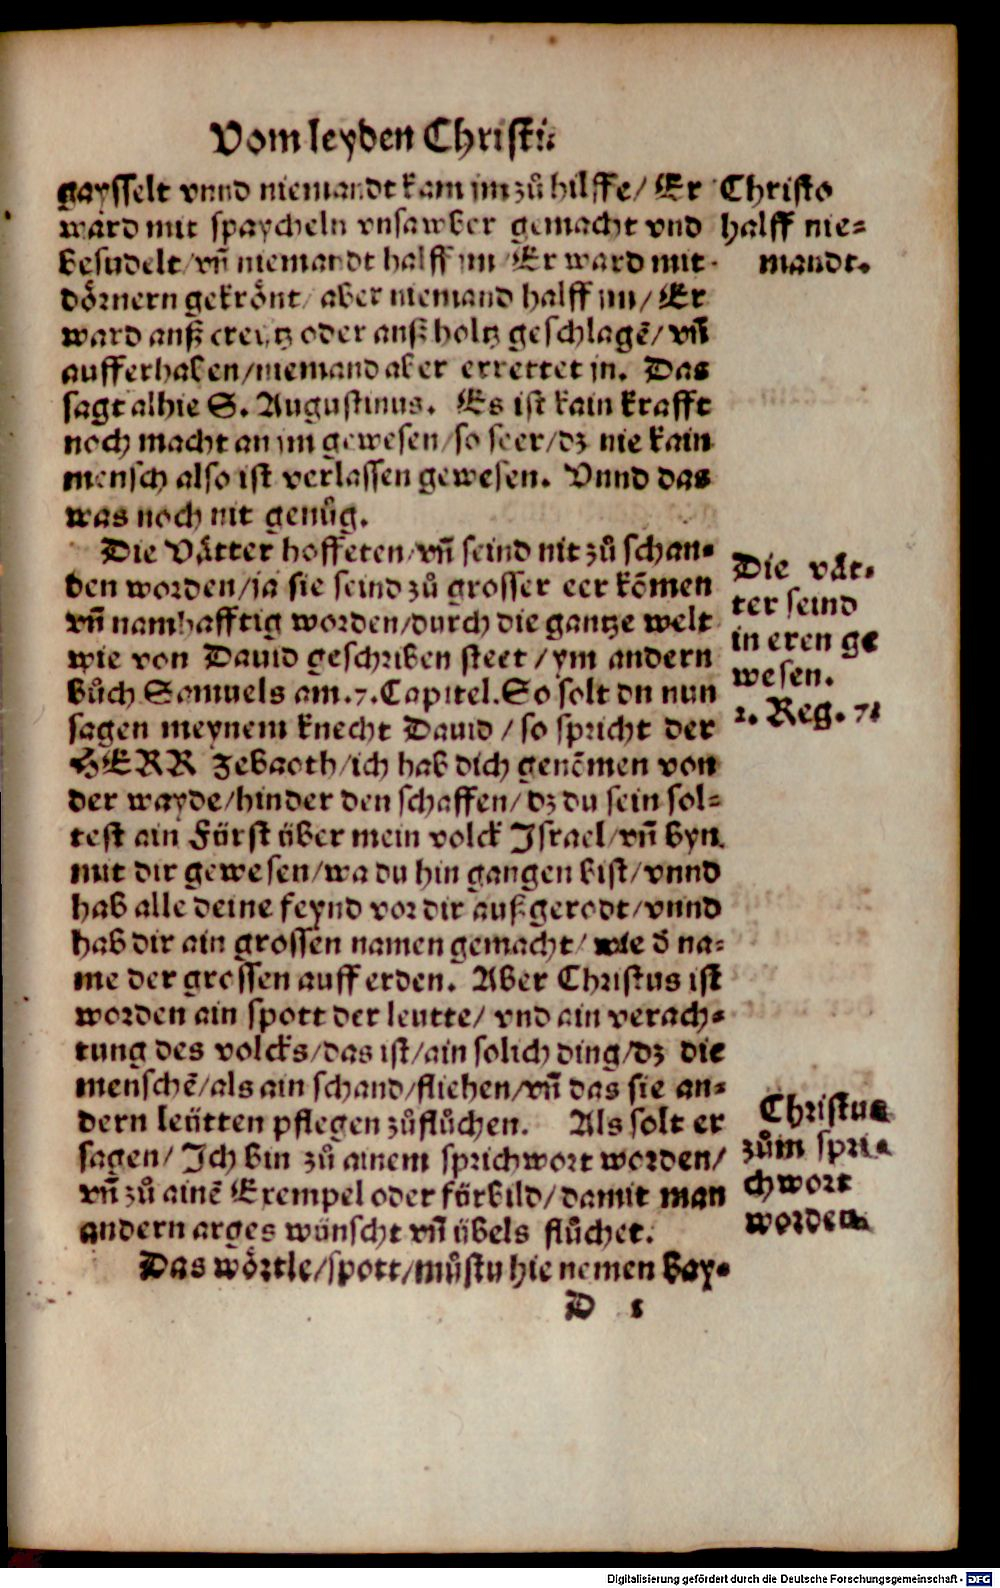 Vom leyden Christi:
gaysselt vnnd niemandt kam jm zů hilffe/ Er
ward mit spaycheln vnsawber gemacht vnd
besudelt/ vñ niemandt halff jm/ Er ward mit
dörnern gekrönt/ aber niemand halff jm/ Er
ward anß creutz oder anß holtz geschlagẽ/ vñ
aufferhaben/ niemand aber errettet jn. Das
sagt alhie S. Augustinus. Es ist kain krafft
noch macht an jm gewesen/ so seer/ dz nie kain
mensch also ist verlassen gewesen. Vnnd das
was noch nit genůg.
Christo
halff nie=
mandt.
Die Vätter hoffeten/ vñ seind nit zů schan=
den worden/ ja sie seind zů grosser eer kõmen
vñ namhafftig worden/ durch die gantze welt
wie von Dauid geschriben steet/ ym andern
bůch Samuels am .7. Capitel. So solt du nun
sagen meynem knecht Dauid/ so spricht der
HERR Zebaoth/ ich hab dich genõmen von
der wayde/ hinder den schaffen/ dz du sein sol=
test ain Fürst über mein volck Israel/ vñ byn
mit dir gewesen/ wa du hin gangen bist/ vnnd
hab alle deine feynd vor dir außgerodt/ vnnd
hab dir ain grossen namen gemacht/ wie d̕ na=
me der grossen auff erden. Aber Christus ist
worden ain spott der leutte/ vnd ain verach=
tung des volcks/ das ist/ ain solich ding/ dz die
menschẽ/ als ain schand/ fliehen/ vñ das sie an=
dern leütten pflegen zůflůchen. Als solt er
sagen/ Ich bin zů ainem sprichwort worden/
vñ zů ainẽ Exempel oder fürbild/ damit man
andern arges wünscht vñ übels flůchet.
Die vät=
ter seind
in eren ge
wesen.
2. Reg. 7.
Christus
zům spri=
chwort
worden.
Das wörtle/ spott/ můstu hie nemen bay=
D
Digitalisierung gefördert durch die Deutsche Forschungsgemeinschaft - DFG